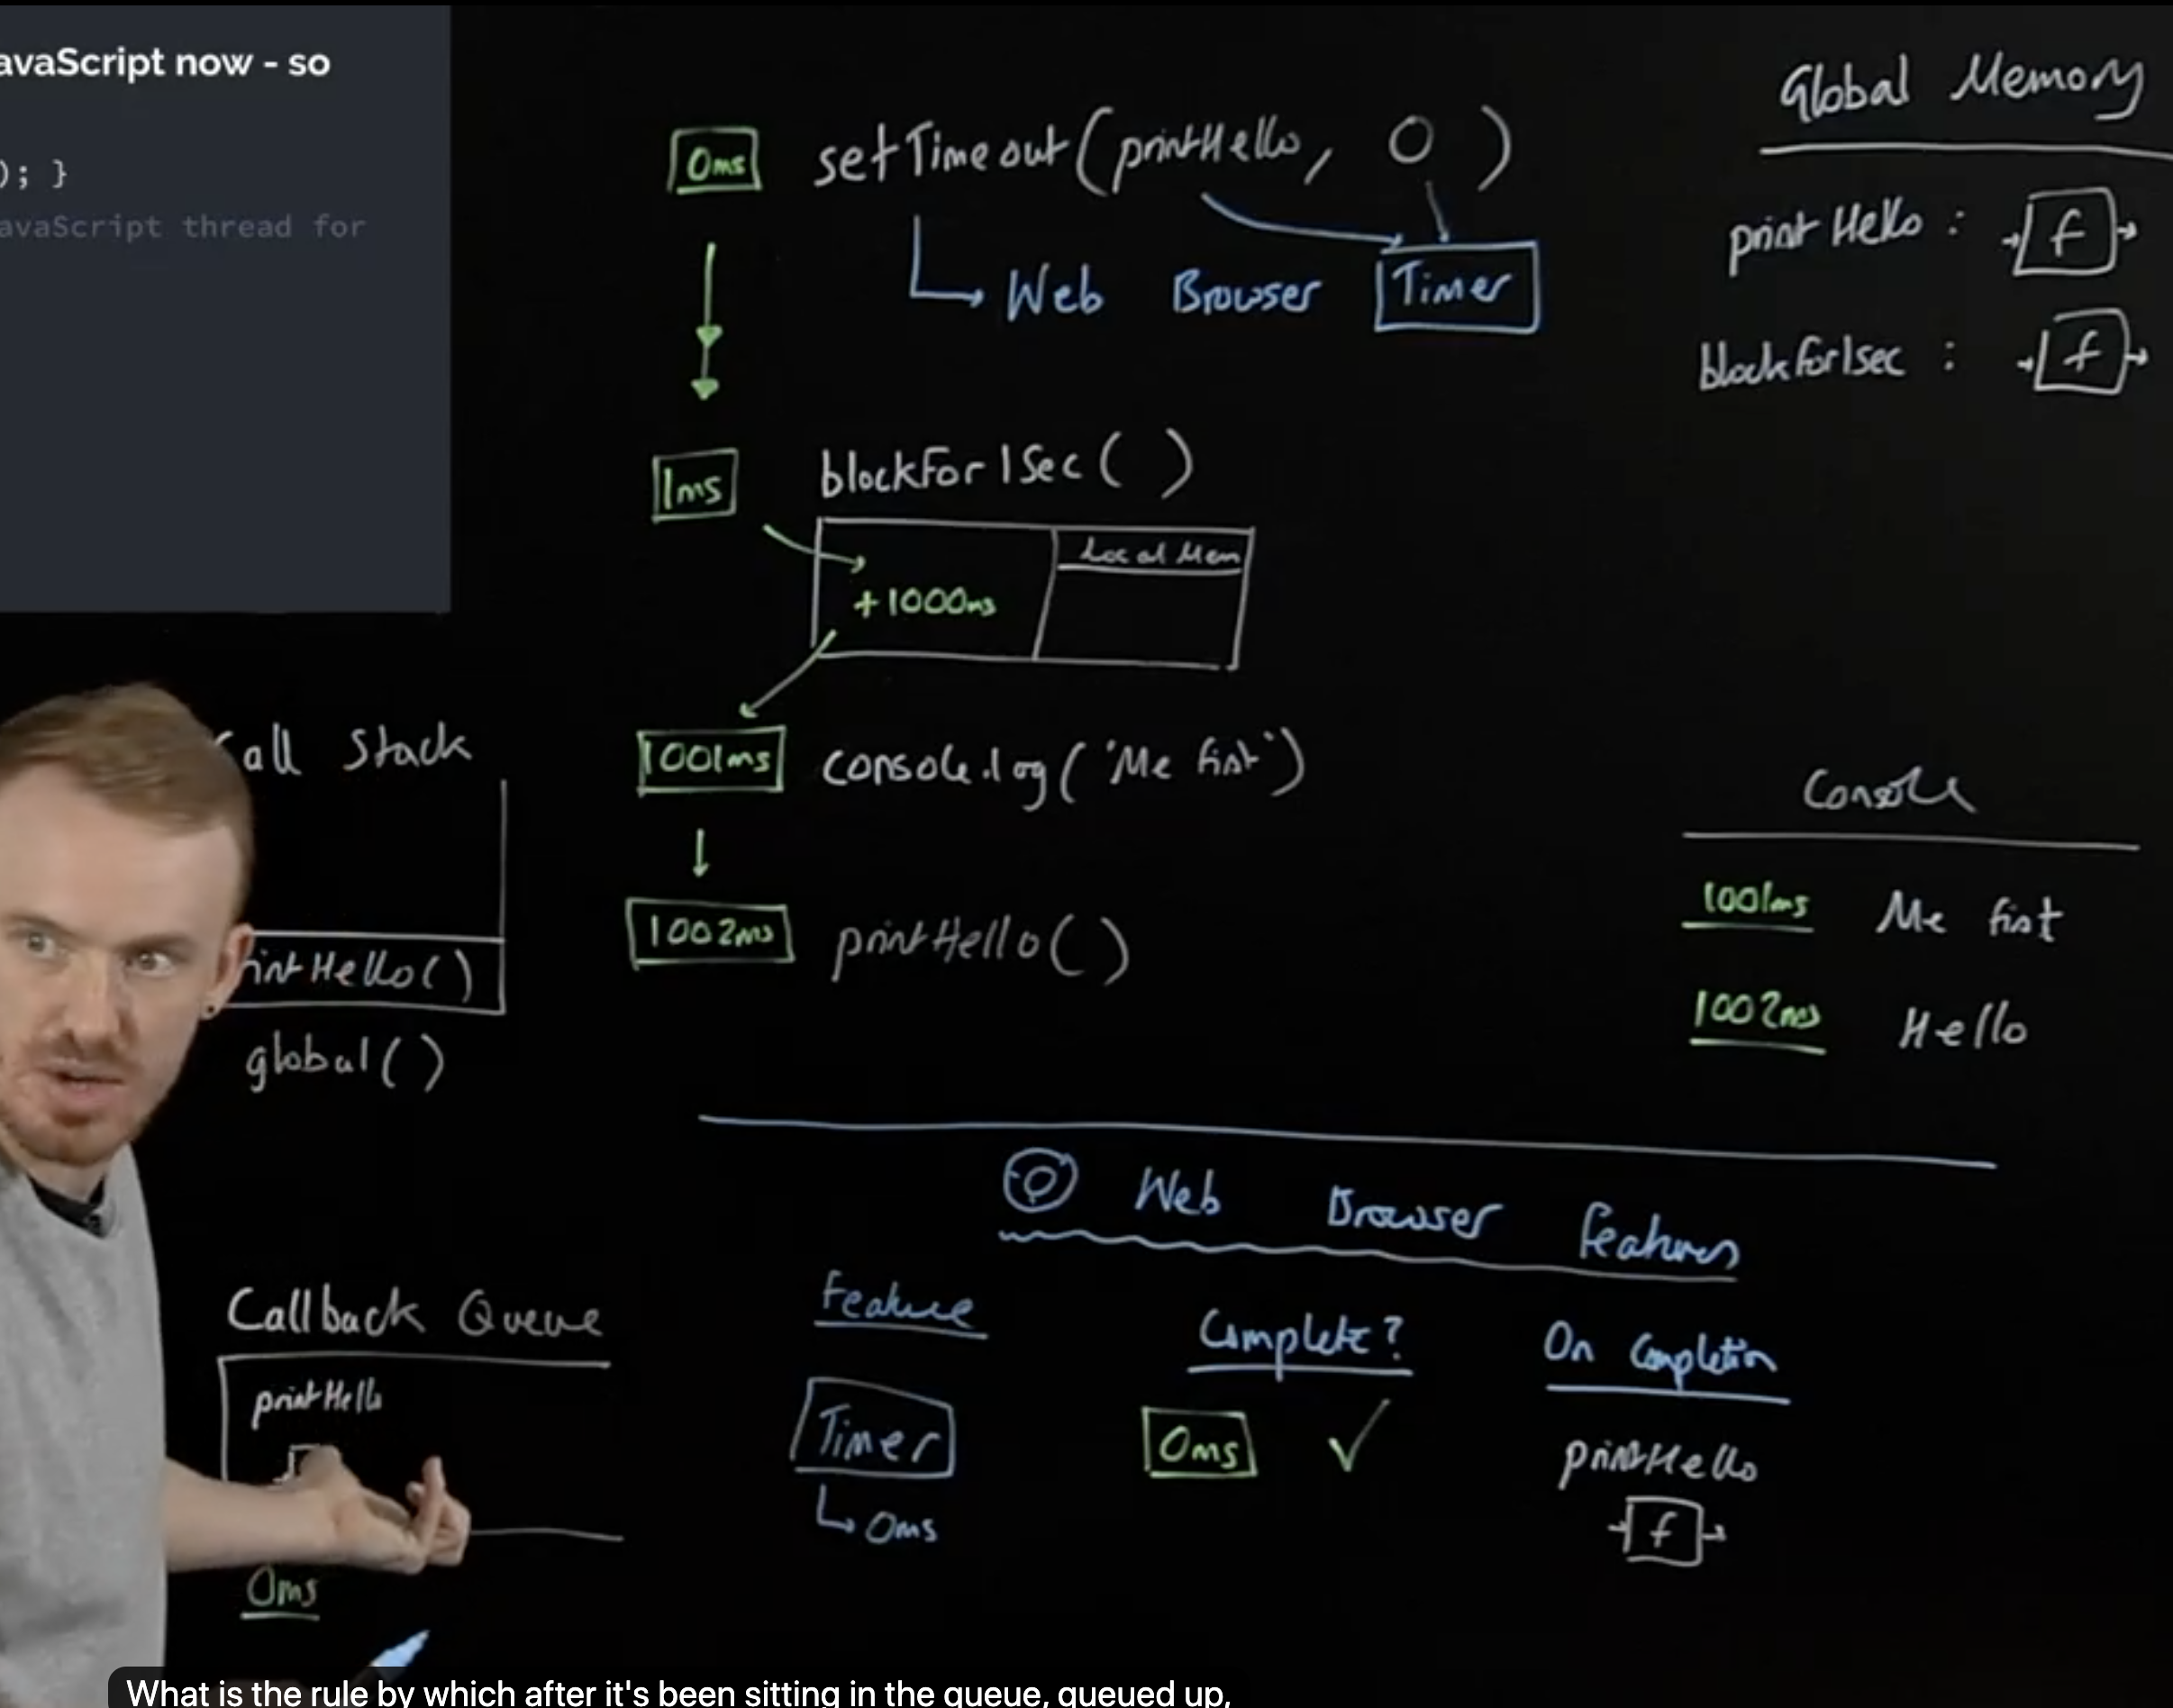 avaScript now - so
); }
avaScript thread for
0ms setTimeout(printHello, 0)
Web Browser Timer
1ms blockFor1Sec( )
Local Mem
+1000ms
1001ms console.log('Me fist')
1002ms printHello( )
Global Memory
printHello : f
blockFor1sec : f
all Stack
intHello( )
global( )
Console
1001ms Me fist
1002ms Hello
Web Browser Features
Feature Complete? On Completion
Timer 0ms ✓ printHello
0ms f
Callback Queue
printHello
0ms
What is the rule by which after it's been sitting in the queue, queued up,